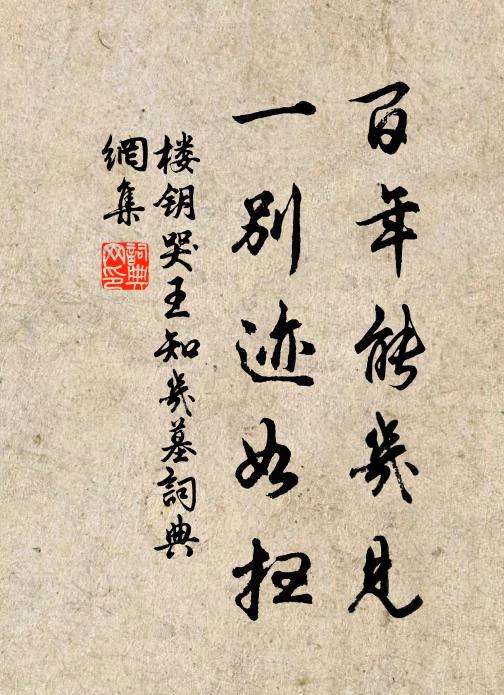 百年能几見
一别迹如扫
楼钥哭王知幾墓詞典
網集
詞典
网印